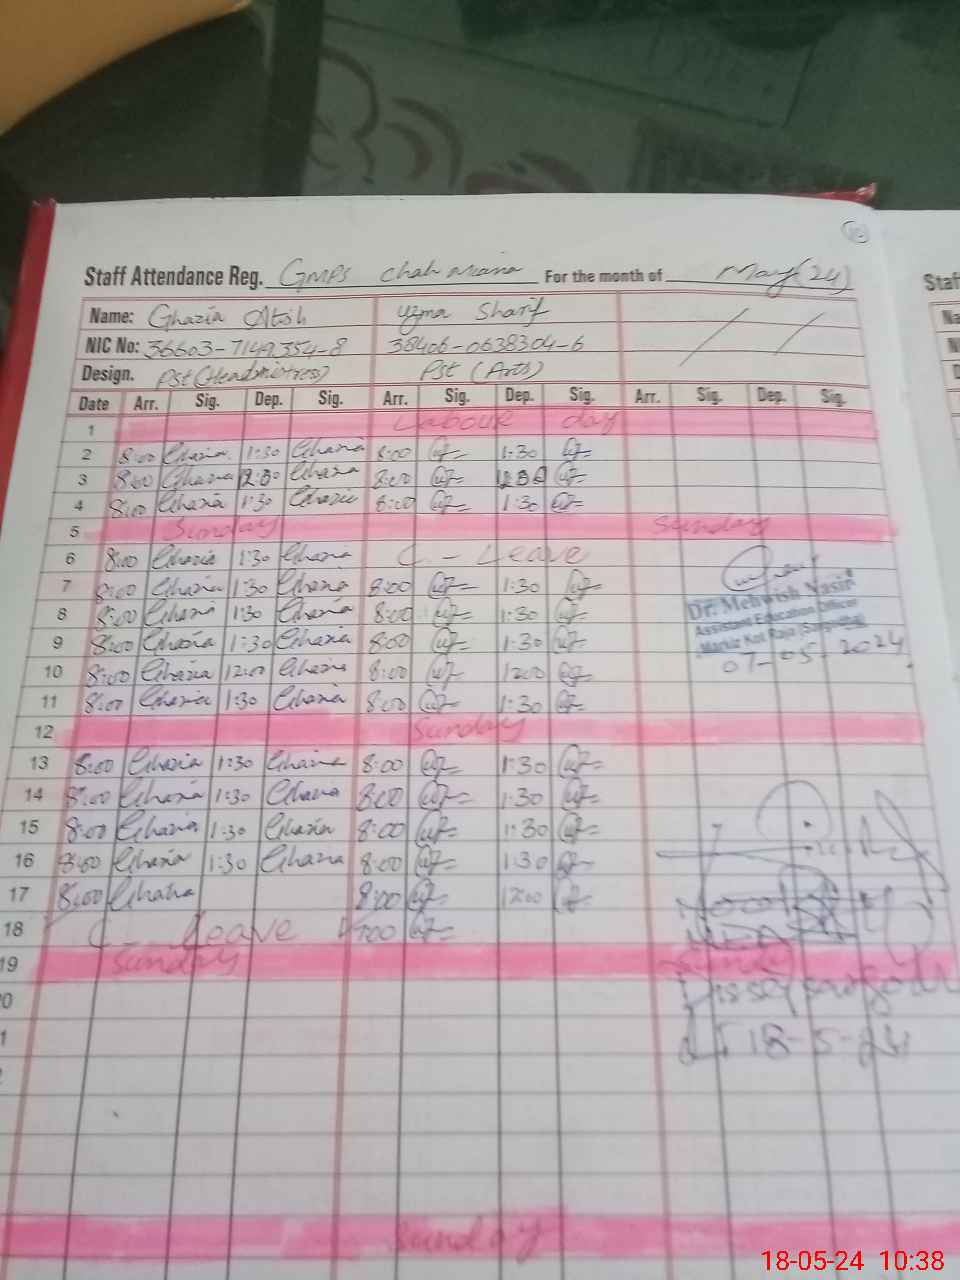 Staff Attendance Reg. GMPS chah miana For the month of May(24)
Name: Ghazia Atsh uzma Sharif
NIC No: 36603-7149354-8 38406-0638304-6
Design. Pst (Headmistress) Pst (Arts)
Date Arr. Sig. Dep. Sig. Arr. Sig. Dep. Sig. Arr. Sig. Dep. Sig.
1 Labour day
2 8:00 Ghazia 1:30 Ghazia 8:00 1:30
3 8:00 Ghazia Ghazia 8:00
4 8:00 Ghazia 1:30 Ghazia 8:00 1:30
5 Sunday Sunday
6 8:00 Ghazia 1:30 Ghazia C - Leave
7 8:00 Ghazia 1:30 Ghazia 8:00 1:30
8 8:00 Ghazia 1:30 Ghazia 8:00 1:30
Dr. Mehwish Nasir
Assistant Education Officer
Markiz Kot Raja (Sargodha)
07-05-2024
9 8:00 Ghazia 1:30 Ghazia 8:00 1:30
10 8:00 Ghazia 12:00 Ghazia 8:00 1200
11 8:00 Ghazia 1:30 Ghazia 8:00 1:30
12 Sunday
13 8:00 Ghazia 1:30 Ghazia 8:00 1:30
14 8:00 Ghazia 1:30 Ghazia 8:00 1:30
15 8:00 Ghazia 1:30 Ghazia 8:00 1:30
16 8:00 Ghazia 1:30 Ghazia 8:00 1:30
17 8:00 Ghazia 8:00 1200
18 C - Leave
19 Sunday Sunday
0
1 dt 18-5-24
Sunday
Staf
Na
NI
D
18-05-24 10:38